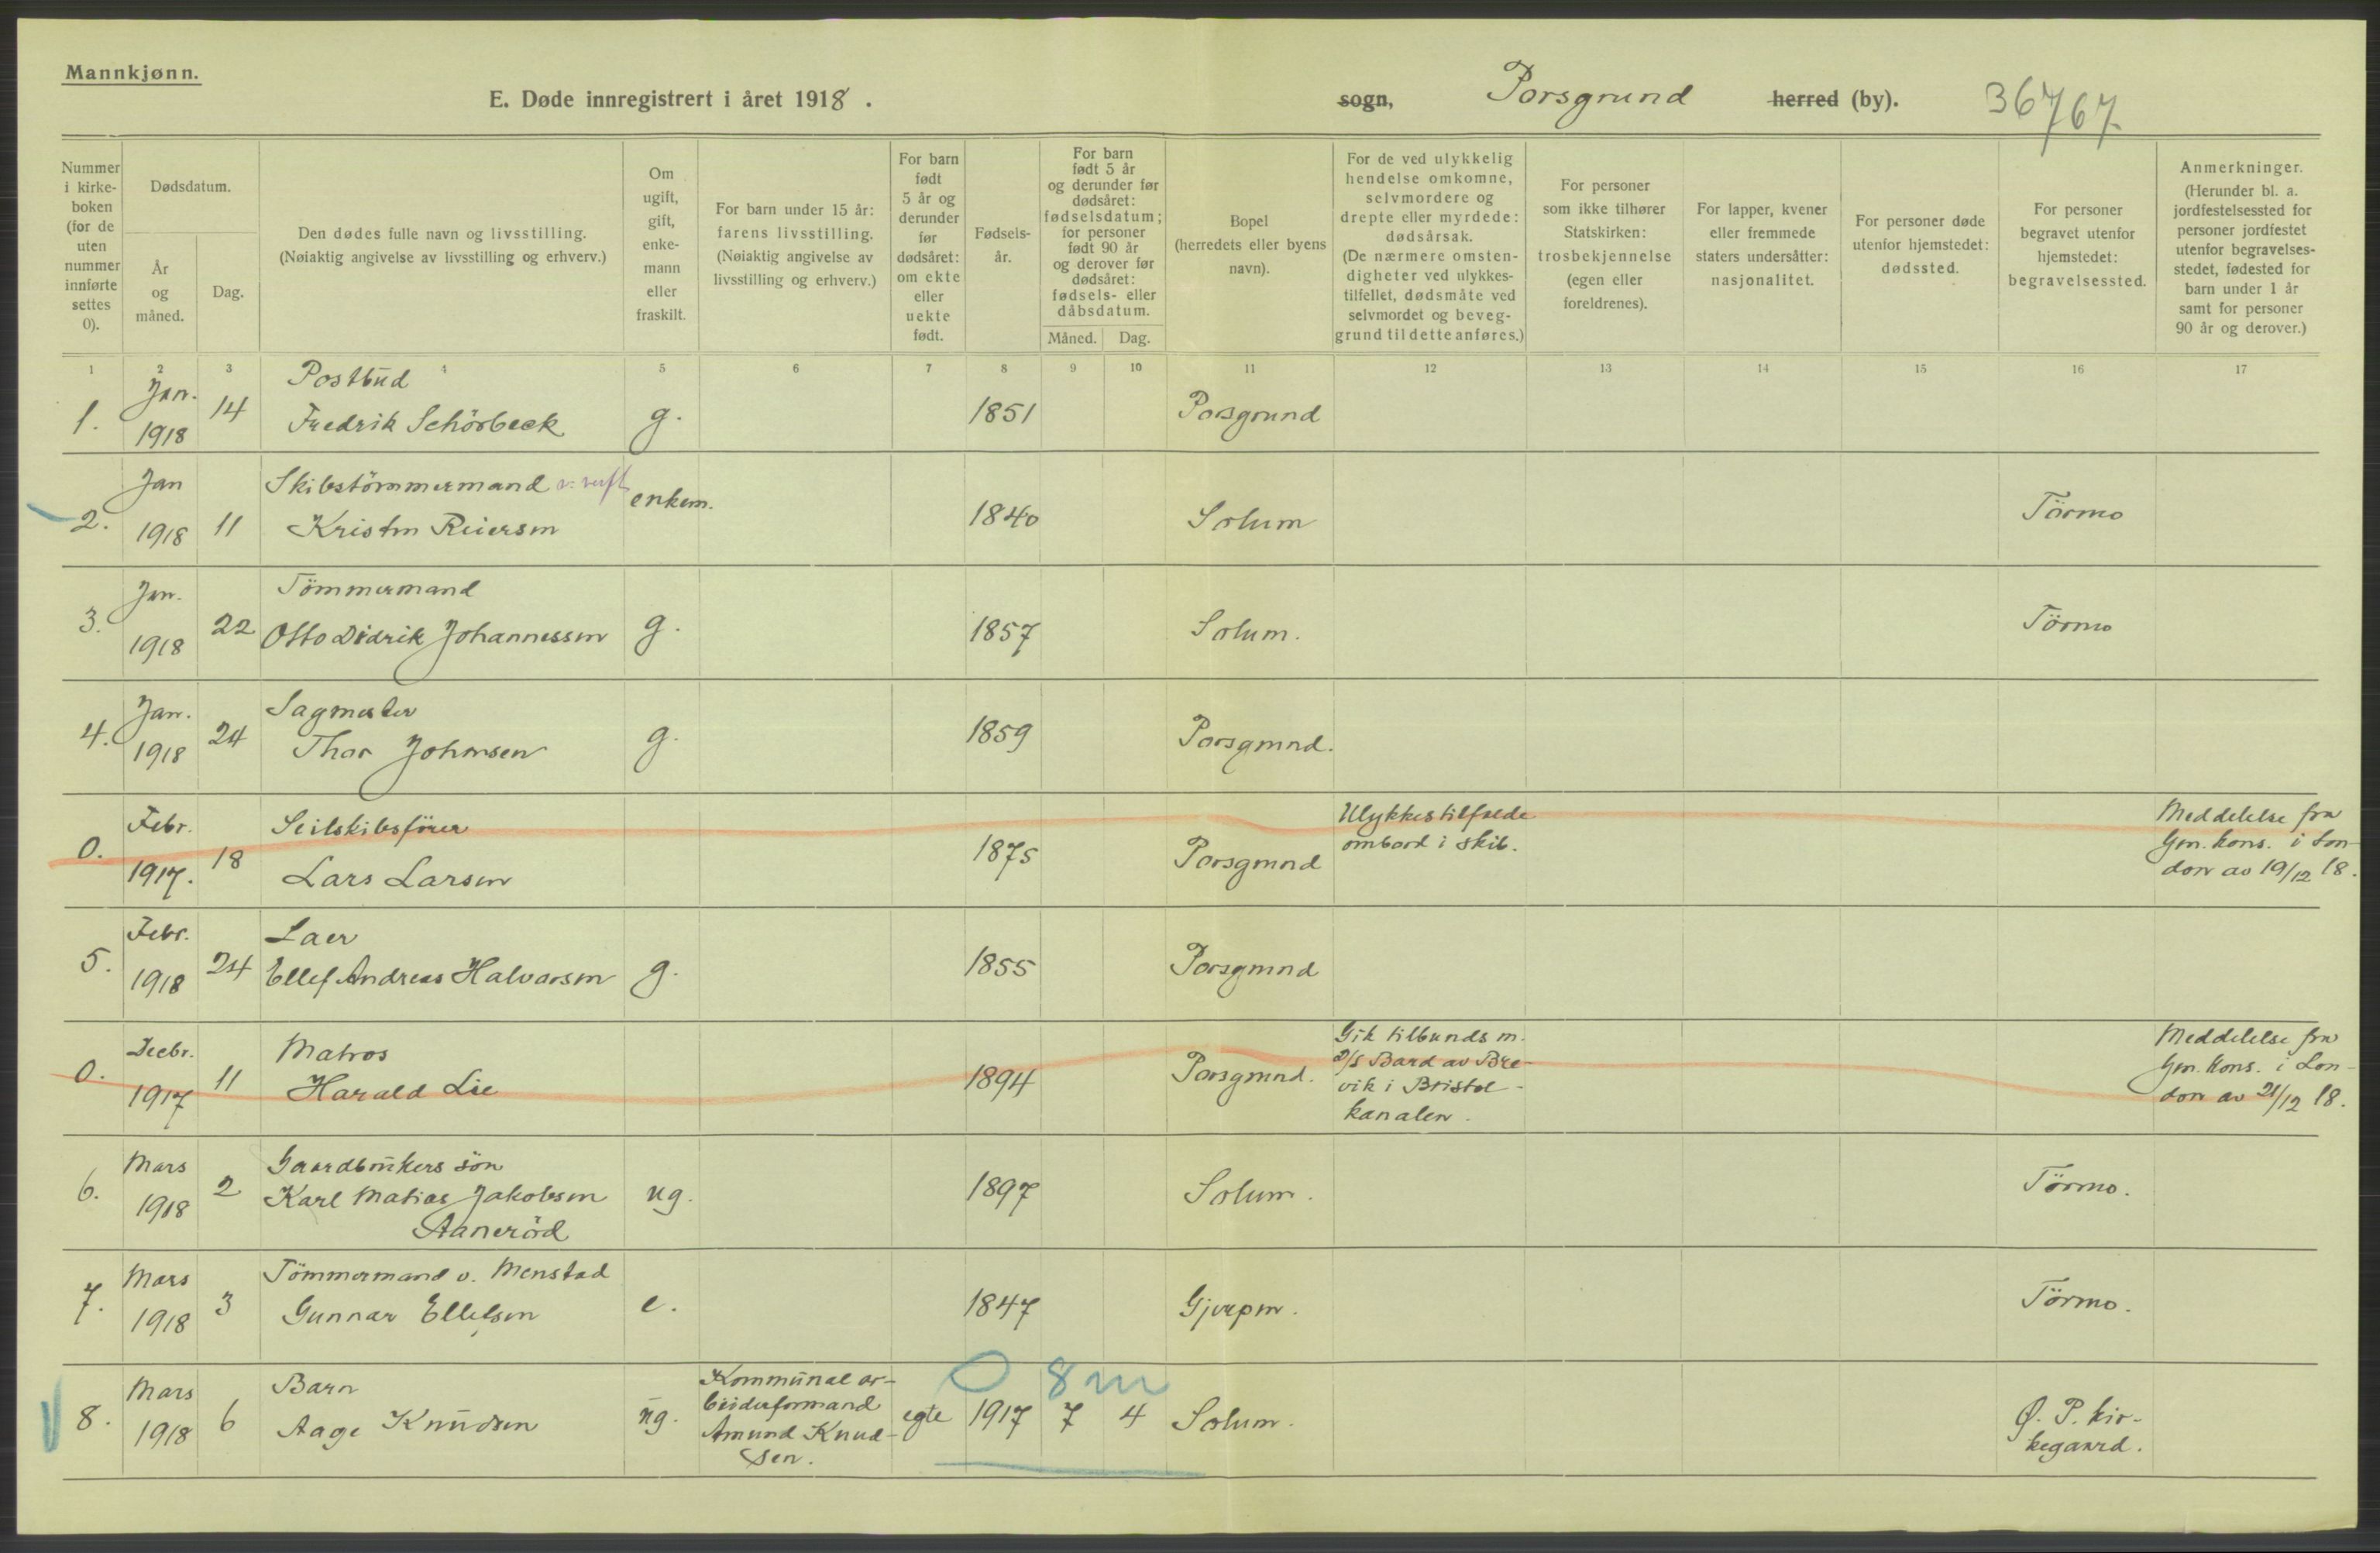 Mannkjønn.
E. Døde innregistrert i året 1918. sogn, Porsgrund herred (by). 36767
Nummer i kirke-boken (for de uten nummer innførte settes 0).
Dødsdatum.
År og måned.
Dag.
Den dødes fulle navn og livsstilling. (Nøiaktig angivelse av livsstilling og erhverv.)
Om ugift, gift, enke-mann eller fraskilt.
For barn under 15 år: farens livsstilling. (Nøiaktig angivelse av livsstilling og erhverv.)
For barn født 5 år og derunder før dødsåret: om ekte eller uekte født.
Fødsels-år.
For barn født 5 år og derunder før dødsåret: fødselsdatum; for personer født 90 år og derover før dødsåret: fødsels- eller dåbsdatum.
Måned. Dag.
Bopel (herredets eller byens navn).
For de ved ulykkelig hendelse omkomne, selvmordere og drepte eller myrdede: dødsårsak. (De nærmere omsten-digheter ved ulykkes-tilfellet, dødsmåte ved selvmordet og beveg-grund til dette anføres.)
For personer som ikke tilhører Statskirken: trosbekjennelse (egen eller foreldrenes).
For lapper, kvener eller fremmede staters undersåtter: nasjonalitet.
For personer døde utenfor hjemstedet: dødssted.
For personer begravet utenfor hjemstedet: begravelsessted.
Anmerkninger. (Herunder bl. a. jordfestelsessted for personer jordfestet utenfor begravelses-stedet, fødested for barn under 1 år samt for personer 90 år og derover.)
1 2 3 4 5 6 7 8 9 10 11 12 13 14 15 16 17
1. Jan. 1918 14 Postbud Fredrik Schörbeck g. 1851 Porsgrund
2. Jan 1918 11 Skibstömmermand Kristen Reiersen enkem. 1840 Solum Törmo
3. Jan. 1918 22 Tömmermand Otto Didrik Johannessen g. 1857 Solum. Törmo
4. Jan. 1918 24 Sagmester Thor Johnsen g. 1859 Porsgrund.
0. Febr. 1917. 18 Seilskibsfører Lars Larsen 1875 Porsgrund Ulykkestilfælde ombord i skib. Meddelelse fra Gen. kons. i Lon-don av 19/12 18.
5. Febr. 1918 24 Laer Ellef Andreas Halvorsen g. 1855 Porsgrund
0. Decbr. 1917 11 Matros Harald Lie 1894 Porsgrund. Gik tilbunds m. D/S Bard av Bre-vik i Bristol-kanalen. Meddelelse fra Gen. kons. i Lon-don av 21/12 18.
6. Mars 1918 2 Gaardbrukers sön Karl Matias Jakobsen Aaneröd ug. 1897 Solum. Törmo.
7. Mars 1918 3 Tömmermand v. Menstad Gunnar Ellefsen e. 1847 Gjerpen. Törmo.
8. Mars 1918 6 Barn Aage Knudsen ug. Kommunal ar-beiderformand Amund Knud-sen. egte 1917 7 4 Solum. Ø. P. kir-kegaard.
0 8 m